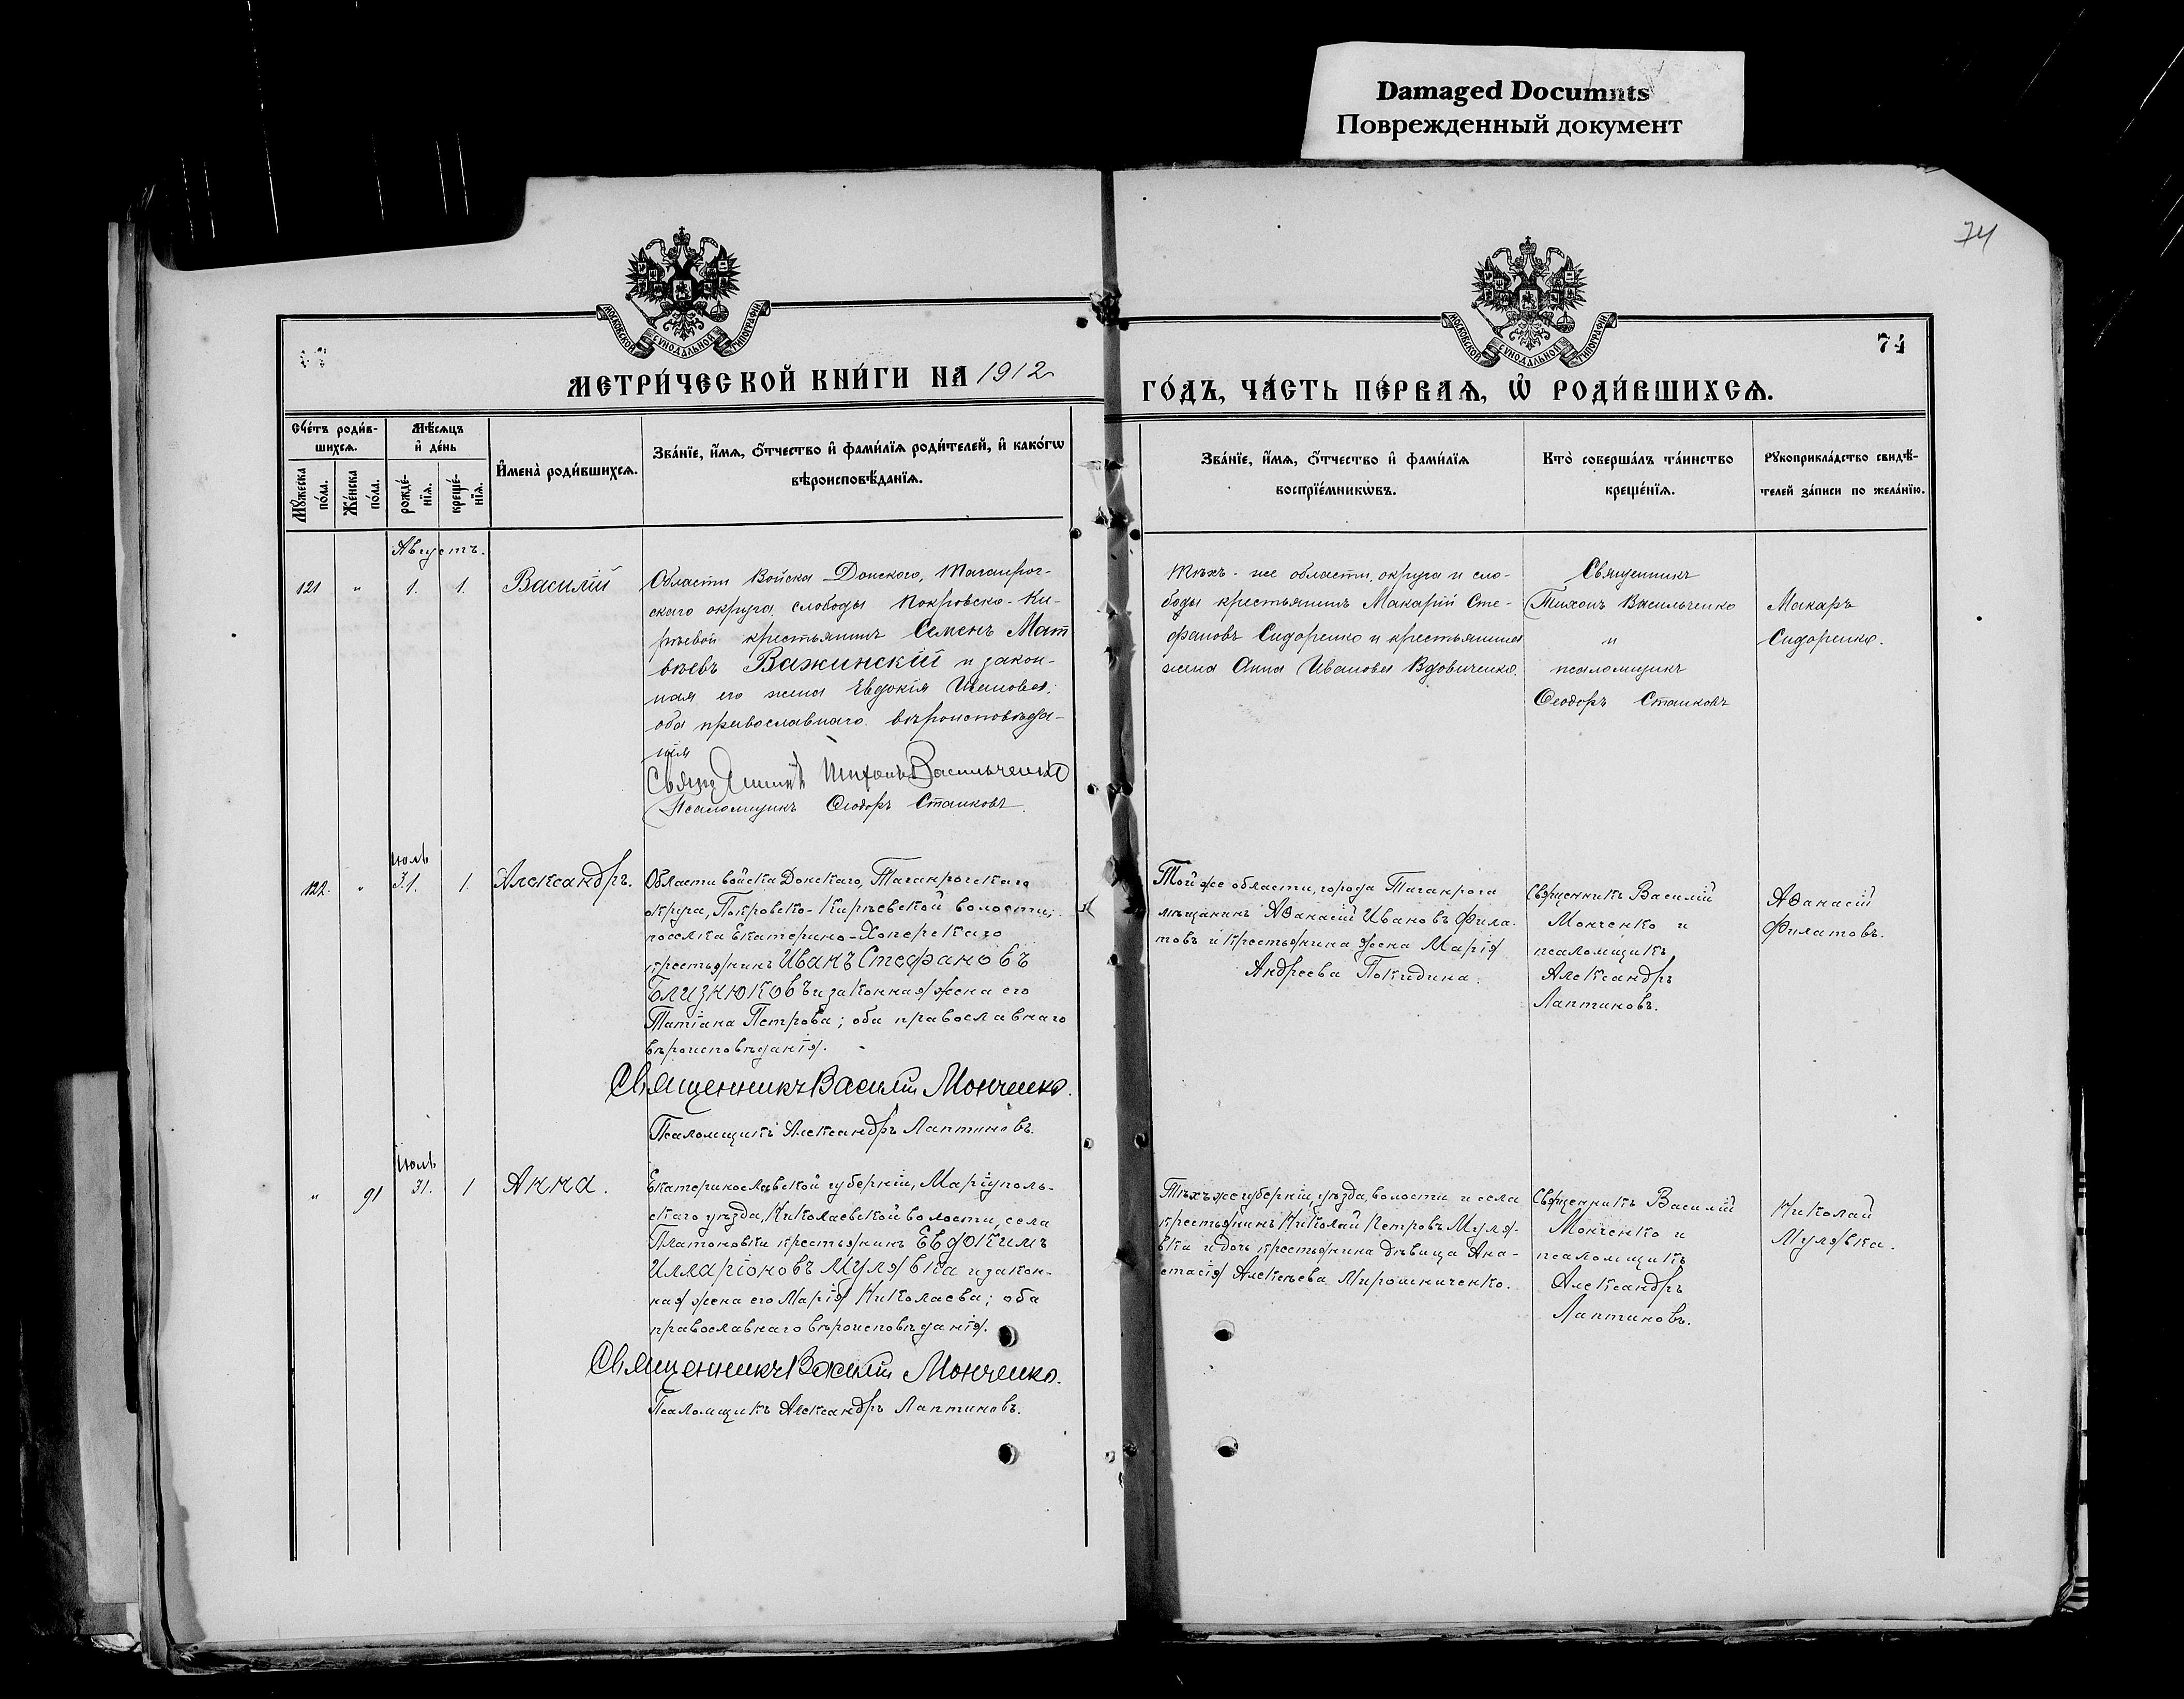 Damaged Documnts
Поврежденный документ
74
МОСКОВСКОЙ СУНОДАЛЬНОЙ ТИПОГРАФІИ
МОСКОВСКОЙ СУНОДАЛЬНОЙ ТИПОГРАФІИ
74
МЕТРИ́ЧЕСКОЙ КНИ́ГИ НА 1912
ГО́ДЪ, ЧА́СТЬ ПЕ́РВАѦ, Ѽ РОДИ́ВШИХСѦ.
Сче́тъ роди́в-
шихсѧ.
Мꙋ́жеска по́ла.
Же́нска по́ла.
Мѣ́сѧцъ
и҆ де́нь
рожде́-
нїѧ.
креще́-
нїѧ.
И҆мена̀ роди́вшихсѧ.
Зва́нїе, и҆́мѧ, ѻ҆́тчество и҆ фами́лїѧ роди́телей, и҆ како́гѡ
вѣроисповѣ́данїѧ.
Зва́нїе, и҆́мѧ, ѻ҆́тчество и҆ фами́лїѧ
воспрїе́мникѡвъ.
Кто̀ соверша́лъ та́инство
креще́нїѧ.
Рꙋкоприкла́дство свидѣ́-
телей за́писи по жела́нїю.
Августъ.
121 " 1. 1. Василій
Области Войска Донского, Таганрог-
скаго округа, слободы Покровско-Ки-
рѣевой крестьянинъ Семенъ Мат
вѣевъ Важинскій и закон-
ная его жена Евдокія Ивановна;
оба православнаго вѣроисповѣда-
нія
Священникъ Тихонъ Васильченко
Псаломщикъ Ѳеодоръ Станковъ
Тѣхъ-же области, округа и сло-
боды крестьянинъ Макарій Сте-
фановъ Сидоренко и крестьянина
жена Анна Иванова Вдовиченко.
Священникъ
Тихонъ Васильченко
и
псаломщикъ
Ѳеодоръ Станковъ
Макаръ
Сидоренко.
Іюль
122. " 31. 1. Александръ.
Области войска Донскаго, Таганрогскаго
округа, Покровско-Кирѣевской волости,
поселка Екатерино-Хоперскаго
крестьянинъ Иванъ Стефановъ
Близнюковъ и законная жена его
Татіана Петрова; оба православнаго
вѣроисповѣданія.
Священникъ Василій Монченко.
Псаломщикъ Александръ Лаптиновъ.
Той же области, города Таганрога
мѣщанинъ Аѳанасій Ивановъ Фила-
товъ и крестьянина жена Марія
Андреева Покидина.
Священникъ Василій
Монченко и
псаломщикъ
Александръ
Лаптиновъ.
Аѳанасій
Филатовъ.
Іюль
" 91 31. 1 Анна.
Екатеринославской губерніи, Маріуполь-
скаго уѣзда, Николаевской волости, села
Платоновки крестьянинъ Евдокимъ
Илларіоновъ Мулявка и закон-
ная жена его Марія Николаева; оба
православнаго вѣроисповѣданія.
Священникъ Василій Монченко.
Псаломщикъ Александръ Лаптиновъ.
Тѣхъ же губерніи, уѣзда, волости и села
крестьянинъ Николай Петровъ Муля-
вка и дочь крестьянина дѣвица Ана-
стасія Алексѣева Мирошниченко.
Священникъ Василій
Монченко и
псаломщикъ
Александръ
Лаптиновъ.
Николай
Мулявка.